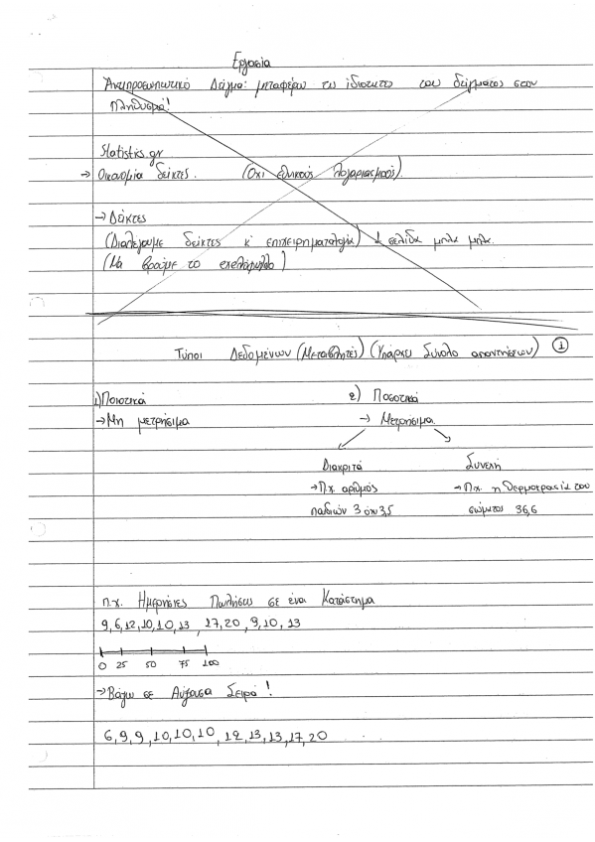 Εργασία
Αντιπροσωπευτικό Δείγμα: μεταφέρω τις ιδιότητες του δείγματος στον
πληθυσμό!
Statistics.gr
→ Οικονομία δείκτες. (Όχι εθνικούς λογαριασμούς)
→ Δείκτες
(Διαλέγουμε δείκτες κ' επιχειρηματολογία) 1 σελίδα μπλα μπλα.
(Να βρούμε το
Τύποι Δεδομένων (Μεταβλητές) (Υπάρχει Σύνολο απαντήσεων) ①
1) Ποιοτικά 2) Ποσοτικά
→ Μη μετρήσιμα → Μετρήσιμα
Διακριτά Συνεχή
→ Πχ αριθμός → Πχ. η θερμοκρασία του
παιδιών 3 όχι 3,5 σώματος 36,6
π.χ. Ημερήσιες Πωλήσεις σε ένα Κατάστημα
9,6,12,10,10,13 ,17,20 ,9,10,13
0 25 50 75 100
→ Βάζω σε Αύξουσα Σειρά!
6,9,9,10,10,10,12,13,13,17,20